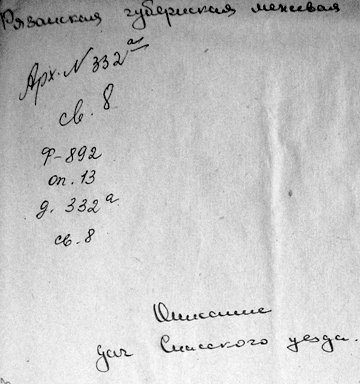 Рязанская губернская межевая
Арх. N 332 а
св. 8
Ф-892
оп. 13
д. 332 а
св. 8
Описание
дач Спасского уезда.